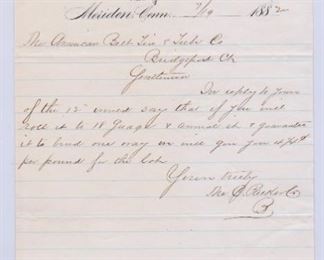 Meriden, Conn. 7/19 1882
The American Belt Tire & Tube Co
Bridgeport Ct
Gentlemen
In reply to yours
of the 12" would say that if you will
roll it to 18 Guage & anneal it & guarantee
it to bend one way we will give you
per pound for the lot
Yours truly
The Parker Co